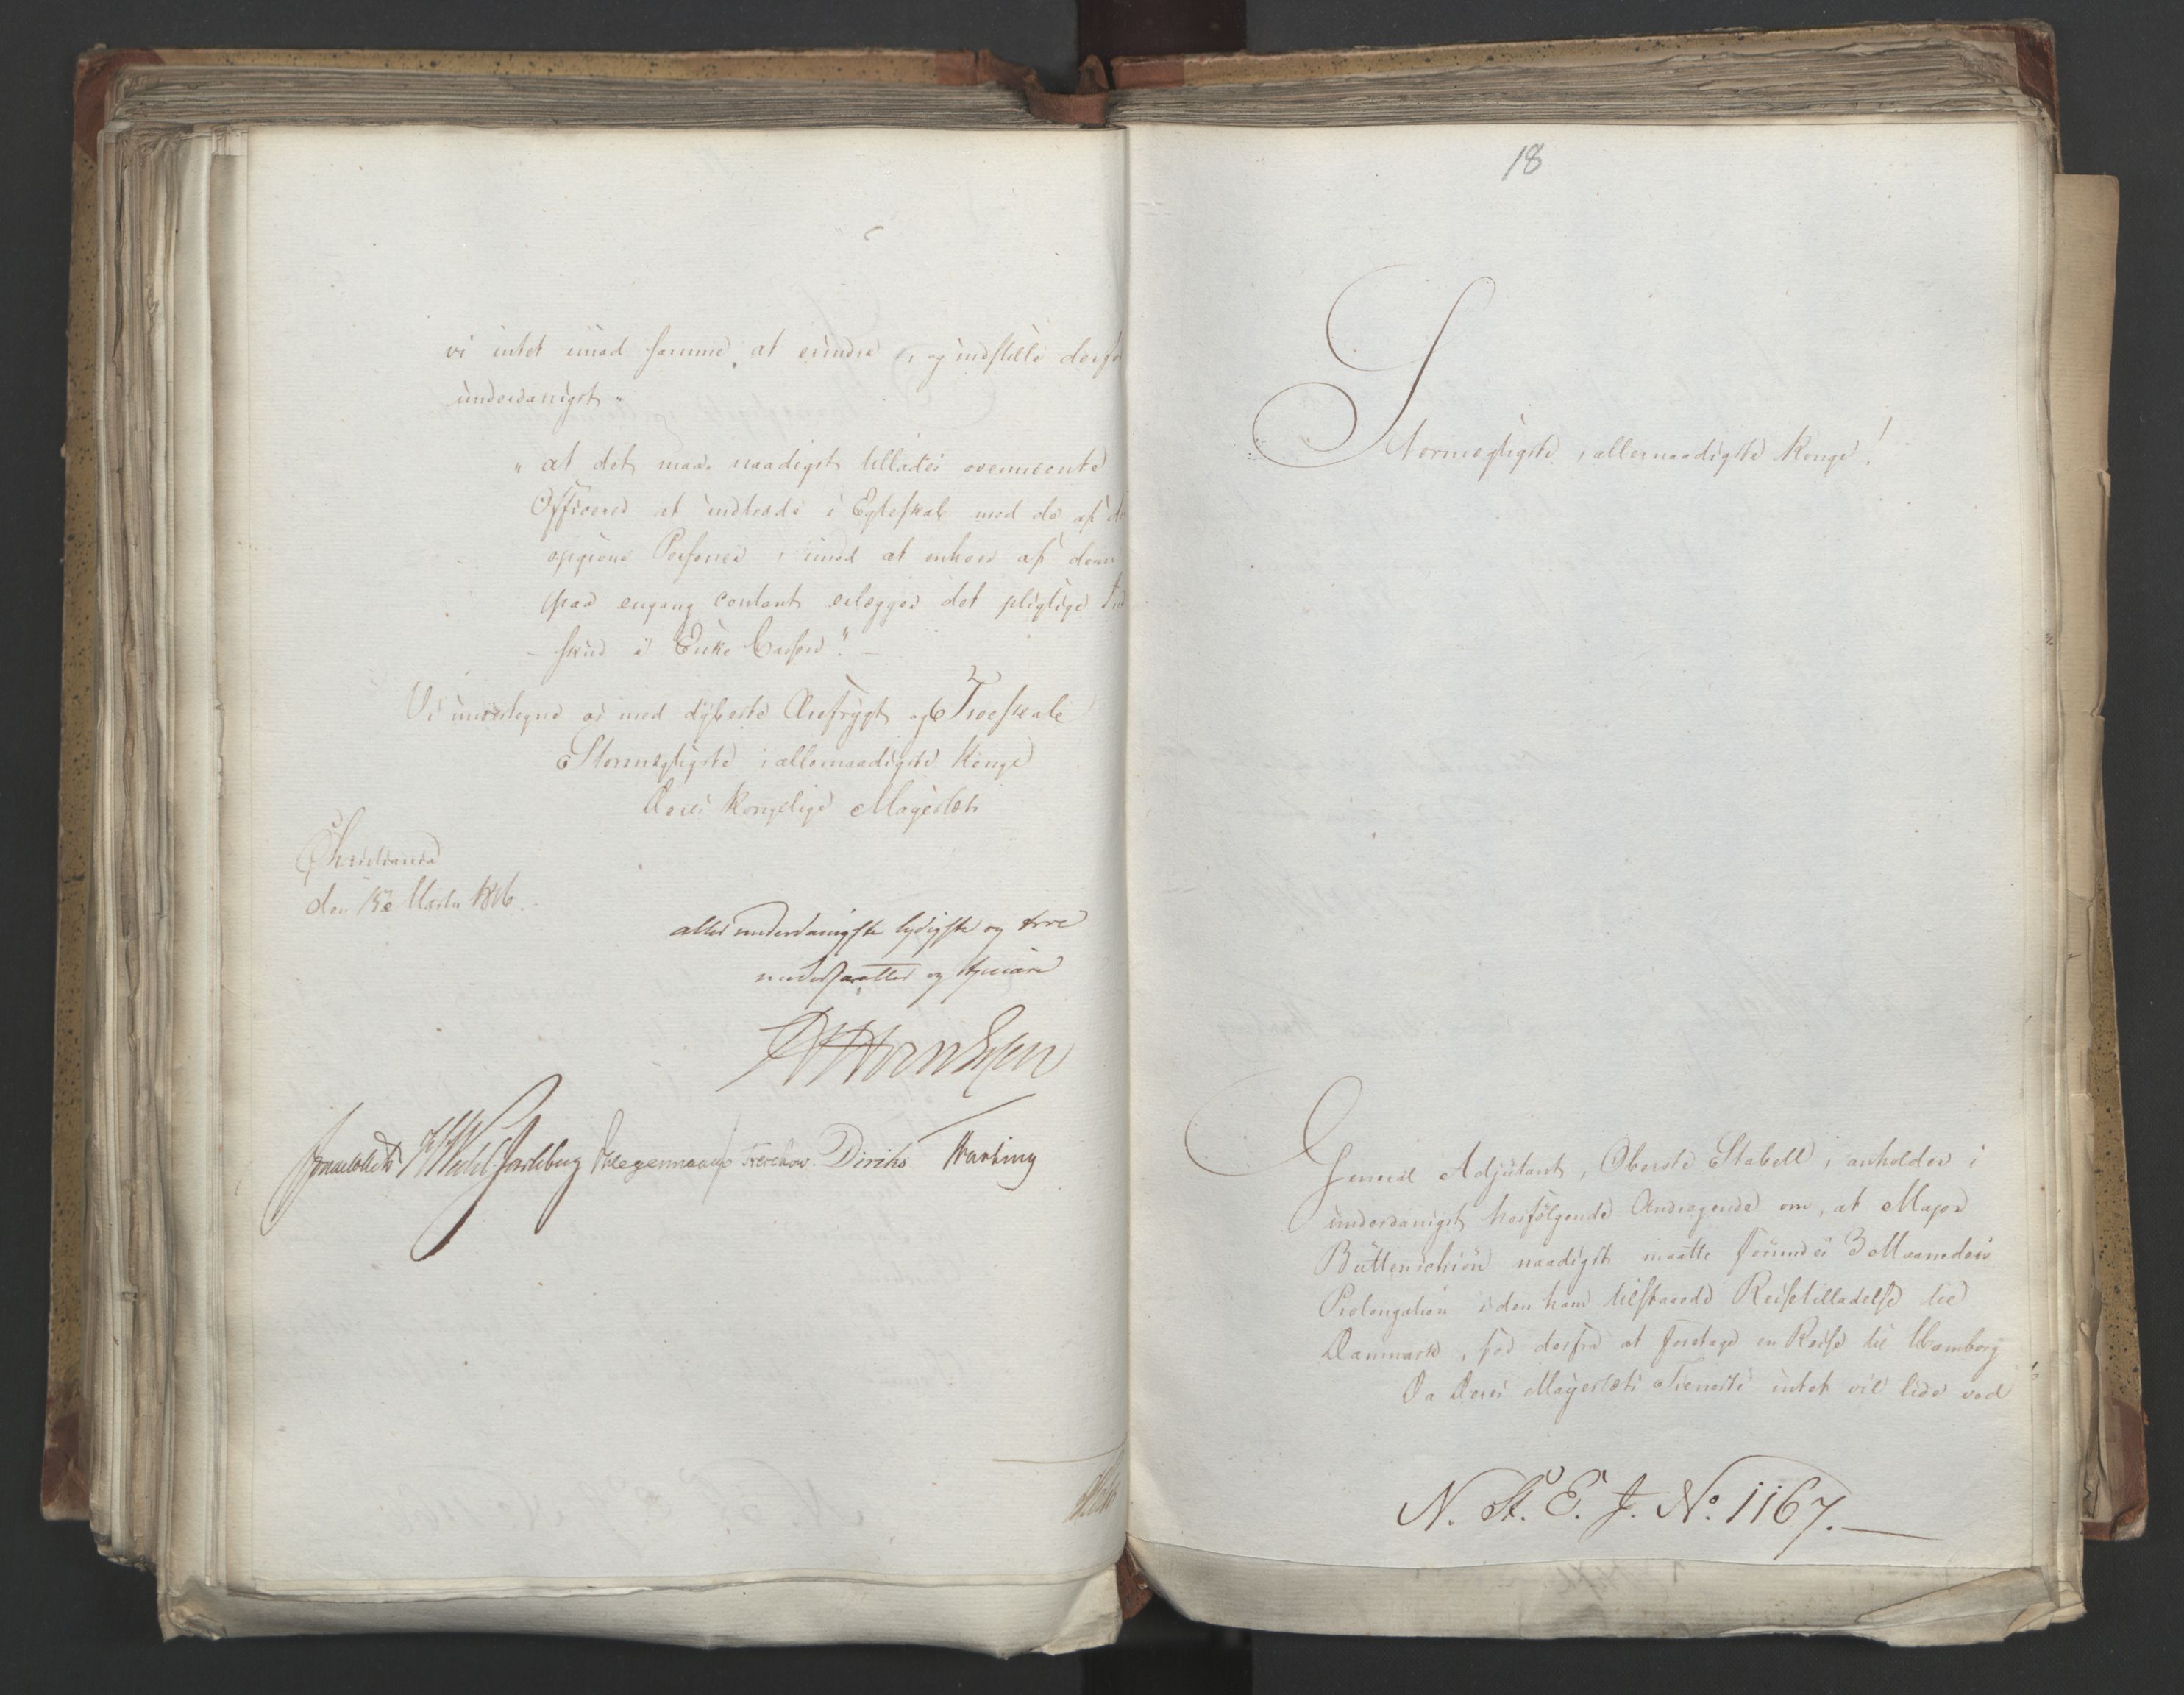 vi intet imod samme at erindre, og indstille derfo
underdanigst"
"at det maae naadigst tillades ovenmeente
Officerer at indtræde i Egteskab med de af d
opgivne Personer, imod at enhver af dem
paa engang contant erlægger det pligtige Ind
-skud i Enke Cassen." -
Vi undertegne os med dybeste Ærefrygt og Troeskab
Stormægtigste, allernaadigste Konge
Deres Kongelige Majestæts
Christiania
den 15e Marts 1816.
allerunderdanigste lydigste og troe
undersaatter og tjenere
Jonas Collett HWedel Jarlsberg Kragemo Treschow. Diriks
18
Stormægtigste, allernaadigste Konge!
General Adjutant, Oberste Stabell, anholder i
underdanigst hosfölgende Andragende om, at Major
Büttenschiön naadigst maatte forundes 3 Maaneders
Prolongation i den ham tilstaaede Reisetilladelse til
Danmark, for derfra at foretage en Reise til Hamborg
Da Deres Majestæts Tieneste intet vil lide ved
N. St. E. J. No. 1167.